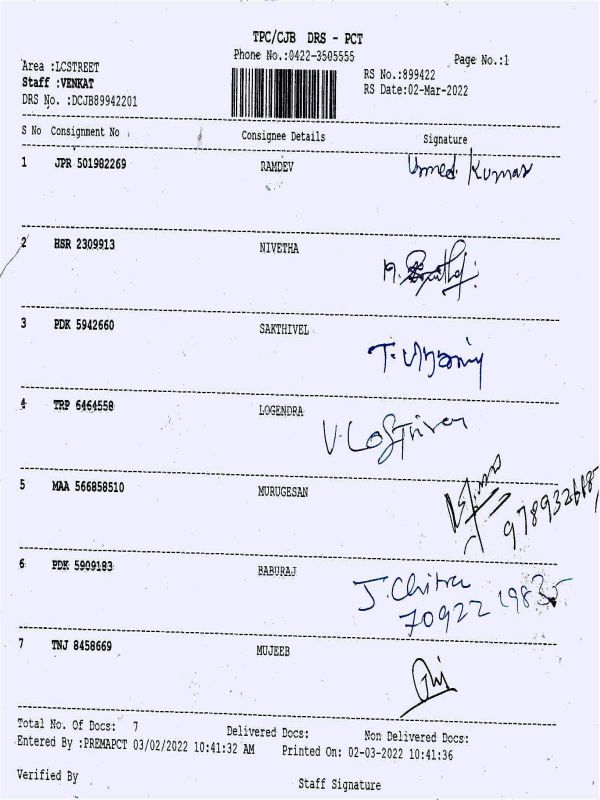 TPC/CJB DRS - PCT
Phone No.:0422-3505555
Page No.:1
Area :LCSTREET
RS No.:899422
Staff :VENKAT
RS Date:02-Mar-2022
DRS No. :DCJB89942201
S No Consignment No Consignee Details Signature
1 JPR 501982269 RAMDEV Umed Kumar
2 HSR 2309913 NIVETHA
3 PDK 5942660 SAKTHIVEL
4 TRP 6464558 LOGENDRA
5 MAA 566858510 MURUGESAN
6 PDK 5909183 BABURAJ J. Chitra
70922
7 TNJ 8458669 MUJEEB
Total No. Of Docs: 7 Delivered Docs: Non Delivered Docs:
Entered By :PREMAPCT 03/02/2022 10:41:32 AM Printed On: 02-03-2022 10:41:36
Verified By Staff Signature